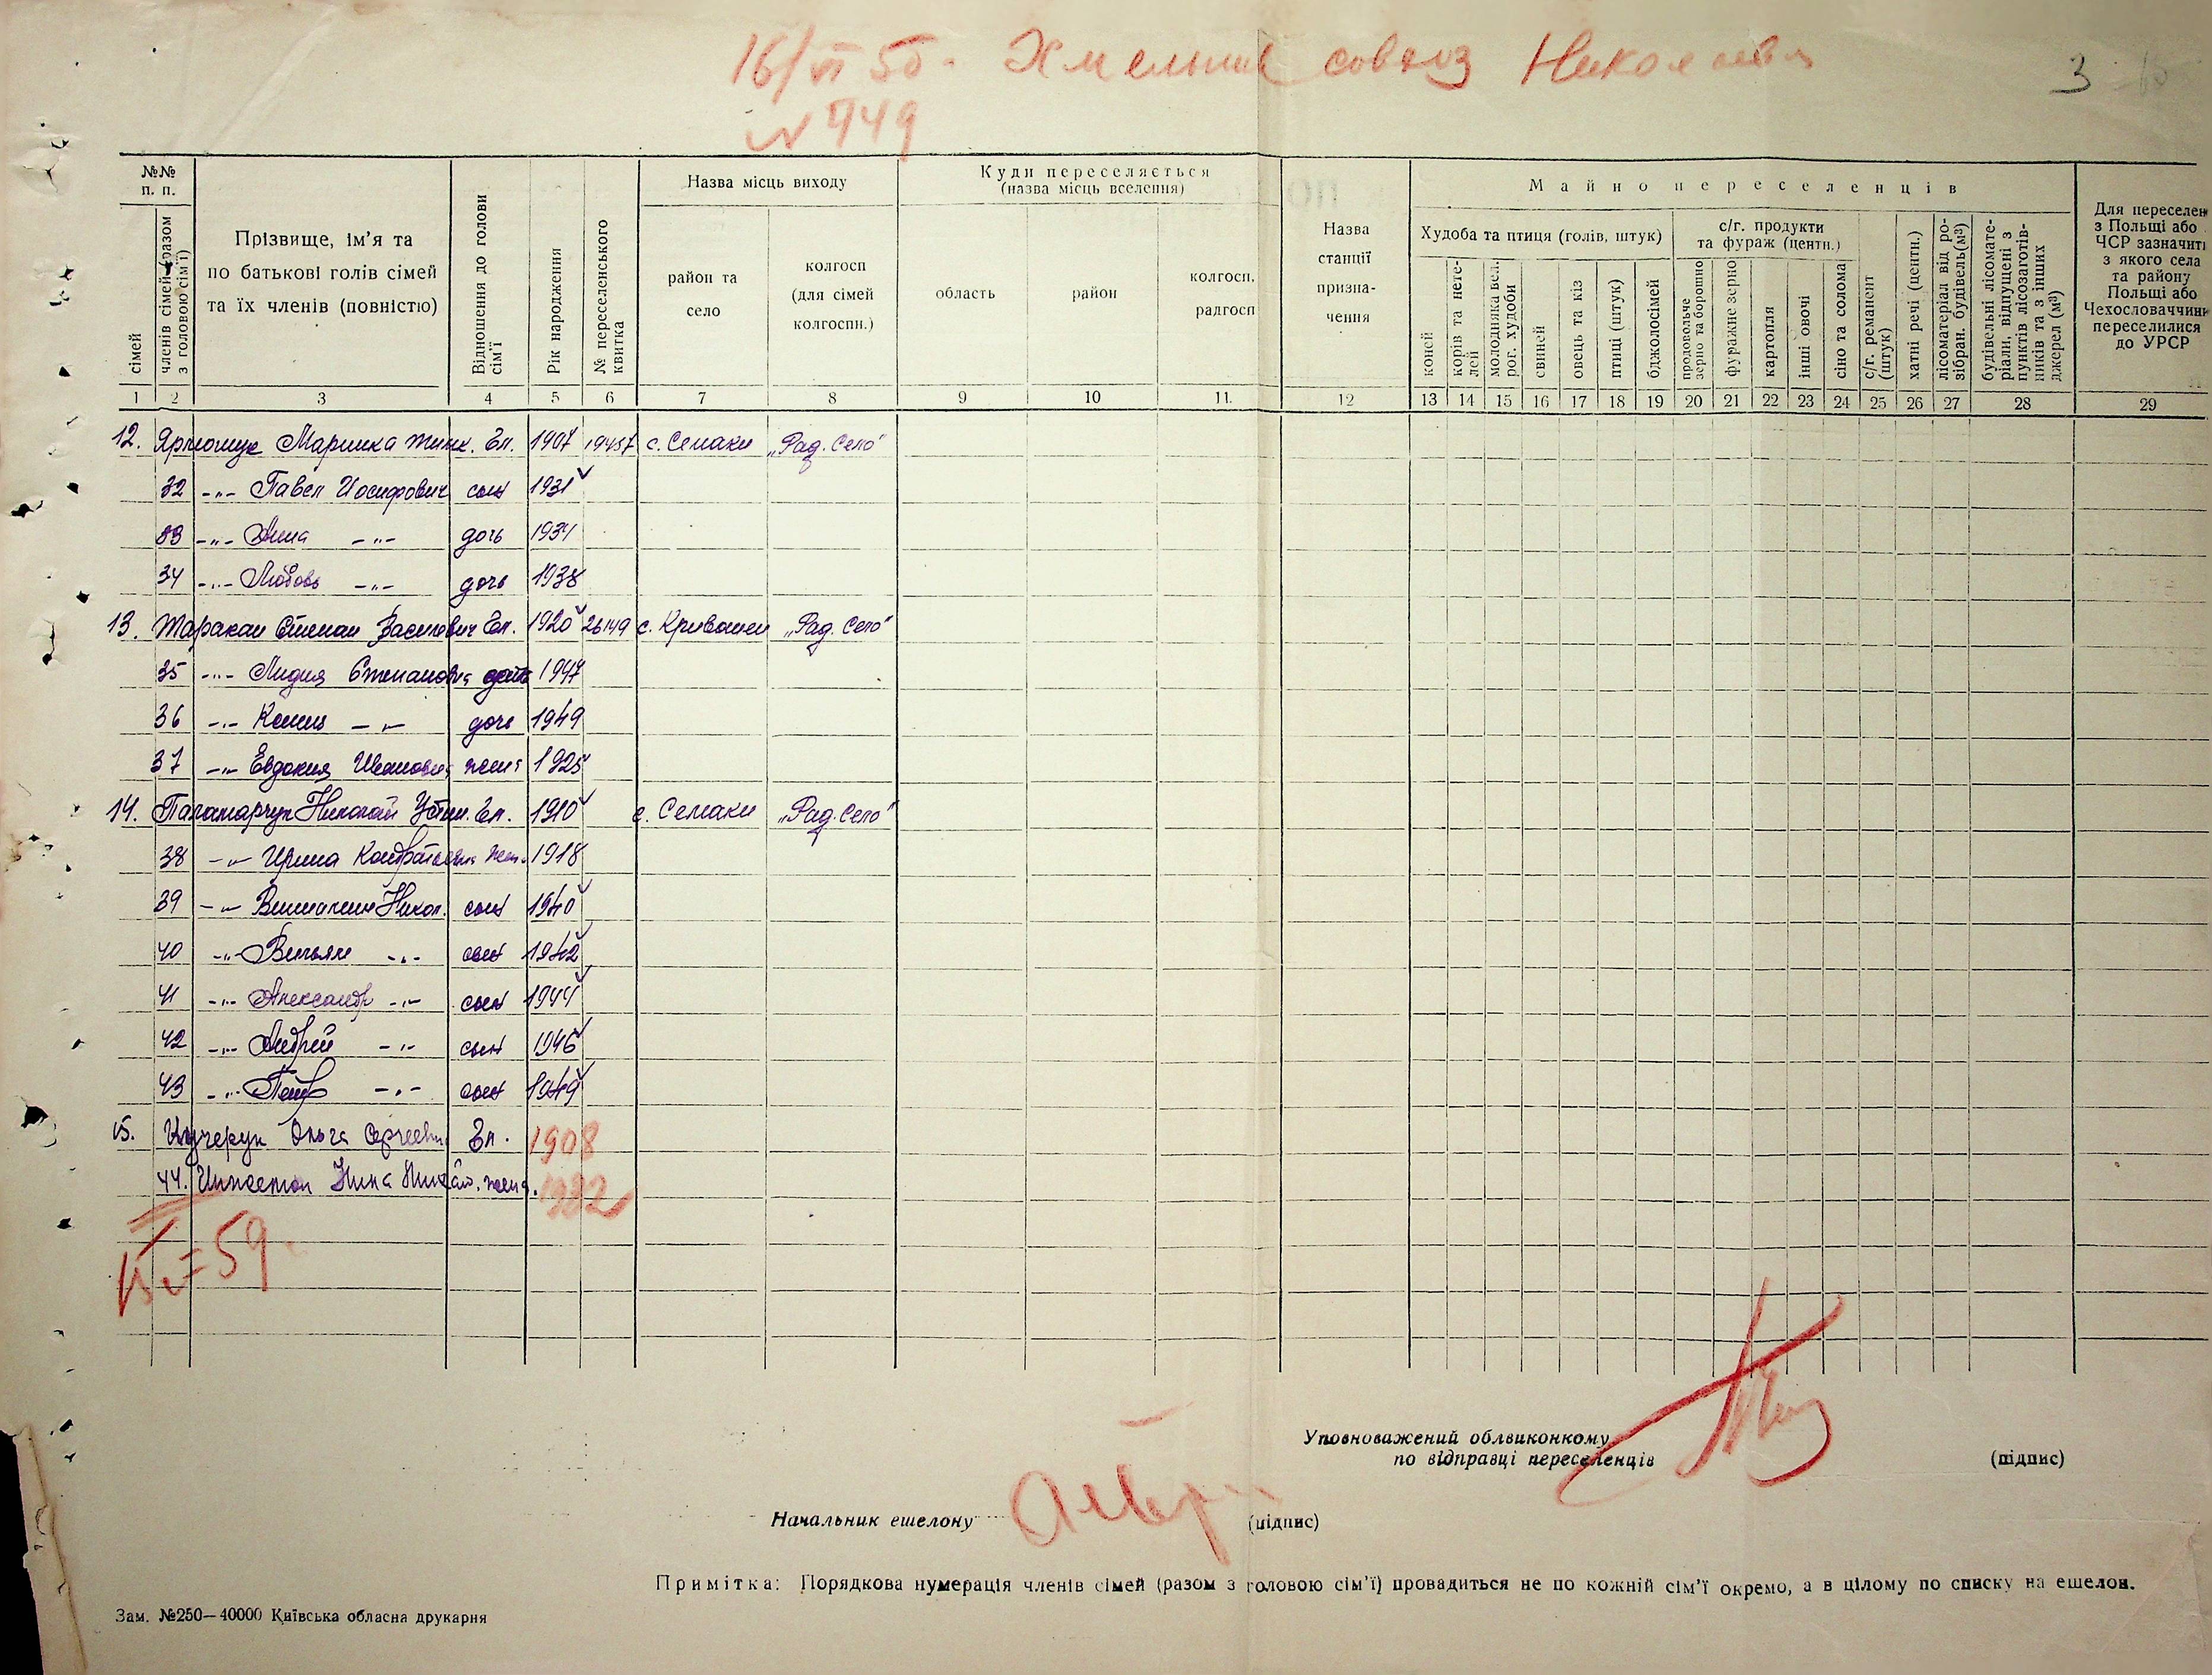 16/VI 50. Хмельник совхоз
№ 449
3
№№ п. п.
сімей
членів сімей (разом з головою сім'ї)
Прізвище, ім'я та по батькові голів сімей та їх членів (повністю)
Відношення до голови сім'ї
Рік народження
№ переселенського квитка
Назва місць виходу
район та село
колгосп (для сімей колгоспн.)
Куди переселяється (назва місць вселення)
область
район
колгосп, радгосп
Назва станції призначення
Майно переселенців
Худоба та птиця (голів, штук)
коней
корів та нетелей
молодняка вел. рог. худоби
свиней
овець та кіз
птиці (штук)
бджолосімей
с/г. продукти та фураж (центн.)
продовольче зерно та борошно
фуражне зерно
картопля
інші овочі
сіно та солома
с/г. реманент (штук)
хатні речі (центн.)
лісоматеріал від розібран. будівель (м³)
будівельні лісоматеріали, відпущені з пунктів лісозаготівників та з інших джерел (м³)
Для переселен з Польщі або ЧСР зазначити з якого села та району Польщі або Чехословаччини переселилися до УРСР
1 2 3 4 5 6 7 8 9 10 11. 12 13 14 15 16 17 18 19 20 21 22 23 24 25 26 27 28 29
12. Ярмощук Маринка Тимх. Гл. 1907 19457 с. Семаки „Рад. Село"
32 -"- Павел Иосифович сын 1931
33 -"- Анна -"- дочь 1934
34 -"- Любовь -"- дочь 1938
13. Таракан Степан Василович Гл. 1920 26149 с. Кривошеи „Рад. Село"
35 -"- Лидия Степановна дочь 1947
36 -"- -"- дочь 1949
37 -"- Евдокия Ивановна жена 1925
14. Паламарчук Николай Устин. Гл. 1910 с. Семаки „Рад. Село"
38 -"- Ирина Кондратьевна жен. 1918
39 -"- Никол. сын 1940
40 -"- -"- сын 1942
41 -"- Александр -"- сын 1944
42 -"- Андрей -"- сын 1946
43 -"- Петр -"- сын 1949
15. Кучерук Ольга Сергеевн. Гл. 1908
44. Нина 1932
15 = 59
Уповноважений облвиконкому
по відправці переселенців (підпис)
Начальник ешелону (підпис)
Примітка: Порядкова нумерація членів сімей (разом з головою сім'ї) провадиться не по кожній сім'ї окремо, а в цілому по списку на ешелон.
Зам. №250—40000 Київська обласна друкарня